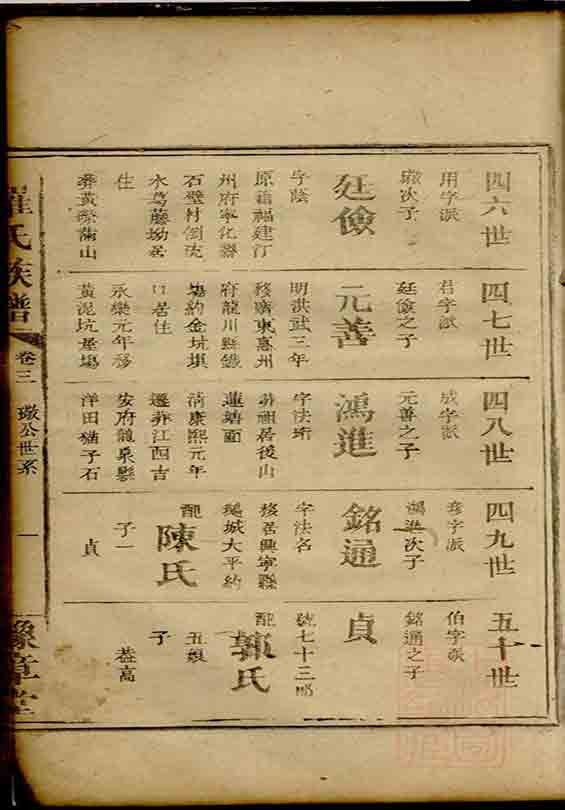 四六世
用字派
璈次子
廷儉
字蔭
原籍福建汀
州府寧化縣
石壁村
水篤藤坳居
住
葬黃
四七世
君字派
廷儉之子
元善
明洪武三年
移廣東惠州
府龍川縣鐵
場約金坑
口居住
永樂元年移
黃泥坑
四八世
成字派
元善之子
鴻進
葬祖居後山
蓮塘面
清康熙元年
遷葬江西吉
安府龍泉縣
洋田猫子石
四九世
彥字派
鴻進次子
銘通
字法名
移居興寧縣
城大平約
配
陳氏
子一
貞
五十世
伯字派
銘通之子
貞
號七十三郎
配
郭氏
五娘
子
氏族譜
卷三
璈公世系
一
豫章堂